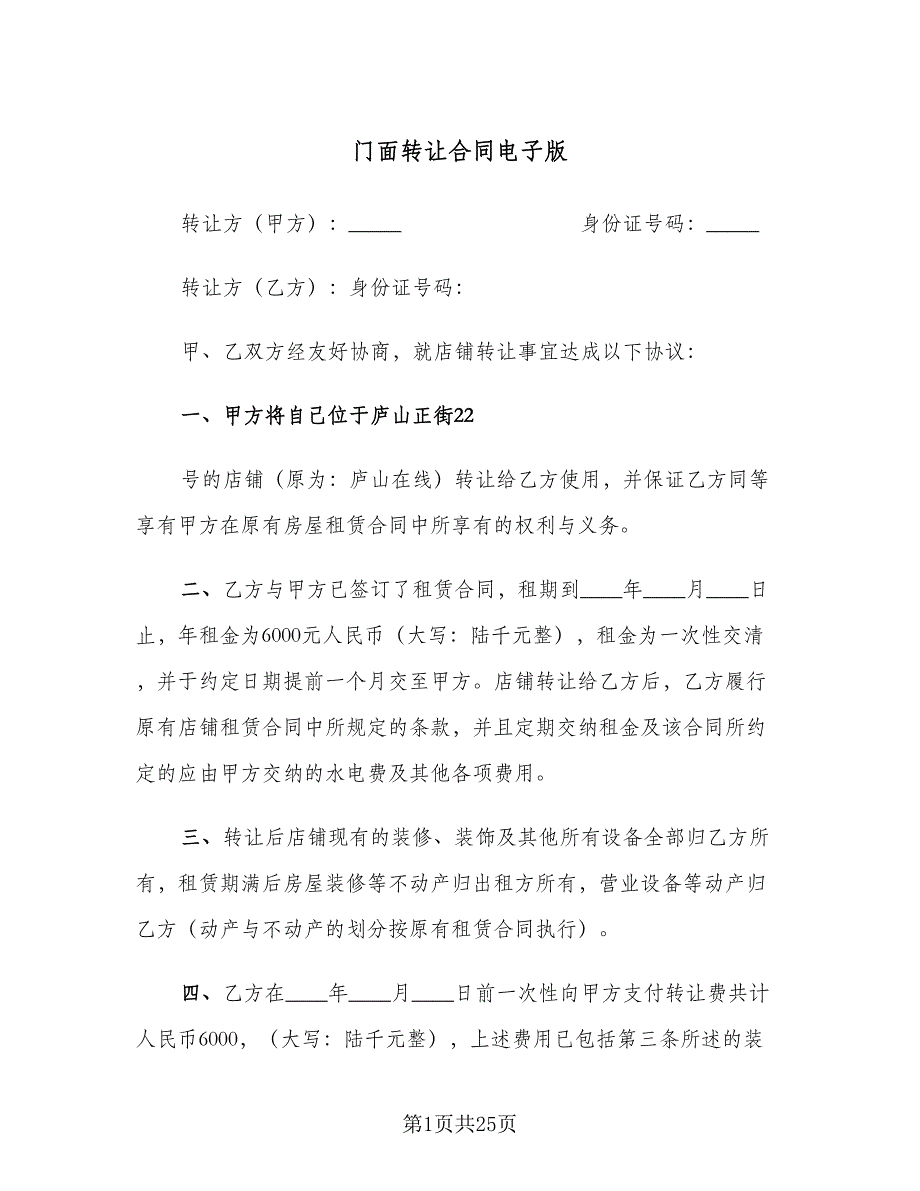 门面转让合同电子版
转让方（甲方）：_____ 身份证号码：_____
转让方（乙方）：身份证号码：
甲、乙双方经友好协商，就店铺转让事宜达成以下协议：
一、甲方将自己位于庐山正街22
号的店铺（原为：庐山在线）转让给乙方使用，并保证乙方同等
享有甲方在原有房屋租赁合同中所享有的权利与义务。
二、乙方与甲方已签订了租赁合同，租期到____年____月____日
止，年租金为6000元人民币（大写：陆千元整），租金为一次性交清
，并于约定日期提前一个月交至甲方。店铺转让给乙方后，乙方履行
原有店铺租赁合同中所规定的条款，并且定期交纳租金及该合同所约
定的应由甲方交纳的水电费及其他各项费用。
三、转让后店铺现有的装修、装饰及其他所有设备全部归乙方所
有，租赁期满后房屋装修等不动产归出租方所有，营业设备等动产归
乙方（动产与不动产的划分按原有租赁合同执行）。
四、乙方在____年____月____日前一次性向甲方支付转让费共计
人民币6000，（大写：陆千元整），上述费用已包括第三条所述的装
第1页共25页